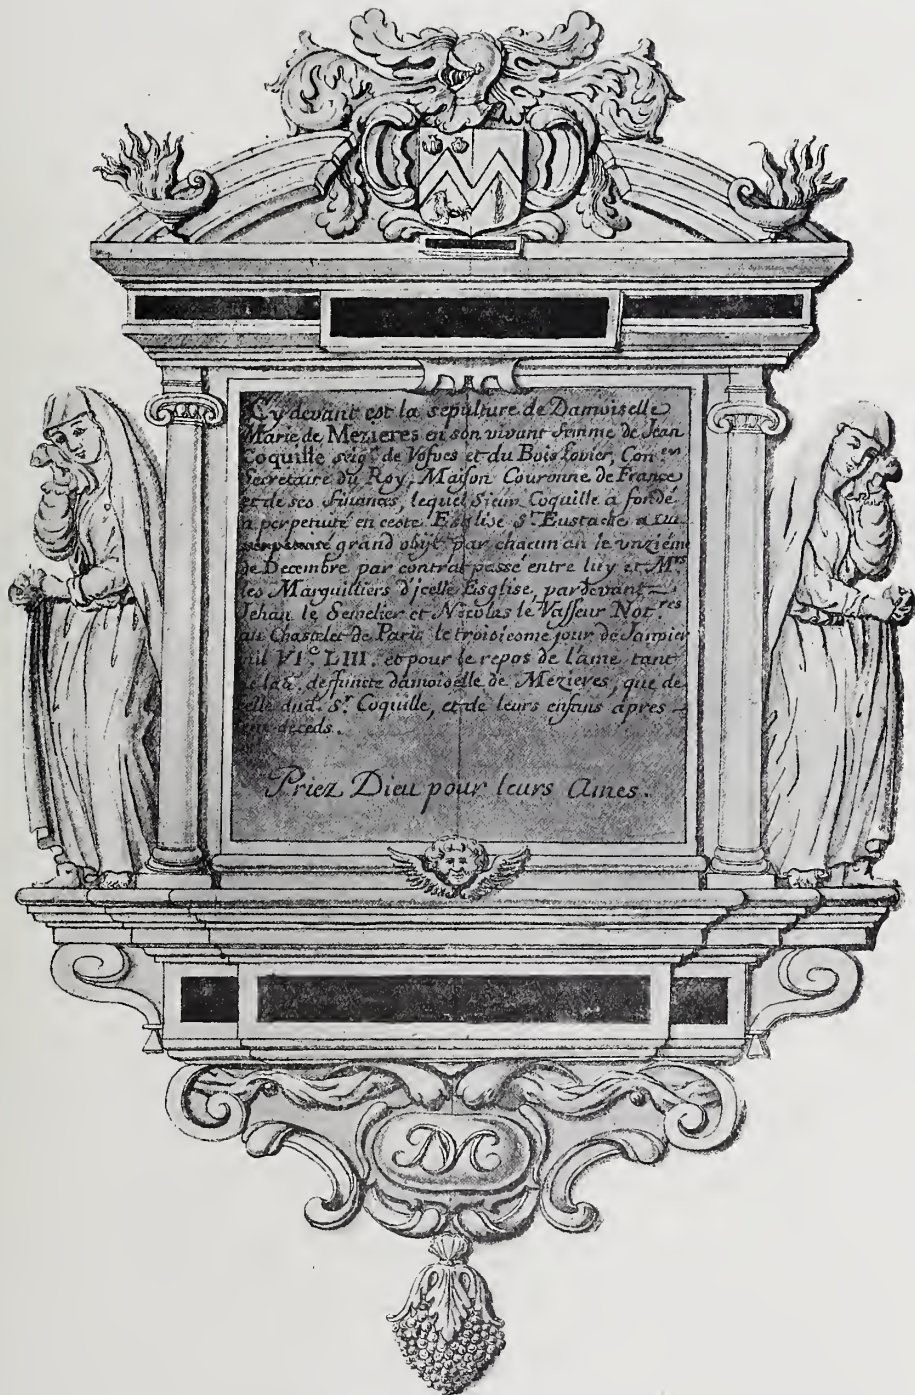 Cy devant est la sepulture de Damoiselle
Marie de Mezieres en son vivant femme de Jean
Coquille seigr. de Vosves et du Bois Lovier, Coner.
Secretaire du Roy, Maison Couronne de France
et de ses finances, lequel Sieur Coquille à fondé
a perpetuité en ceste Esglise St. Eustache
grand obijt par chacun an le unziéme
de Decembre par contrat passé entre luy et Mrs
les Marguilliers d'jcelle Esglise, pardevant
Jehan le Semelier et Nicolas le Vasseur Notres
au Chastelet de Paris le troisieme jour de Janvier
mil VIc. LIII. et pour le repos de l'ame tant
de lad. deffuncte damoiselle de Mezieres, que de
celle dud. Sr. Coquille, et de leurs enfans apres
leur deceds.
Priez Dieu pour leurs Ames.